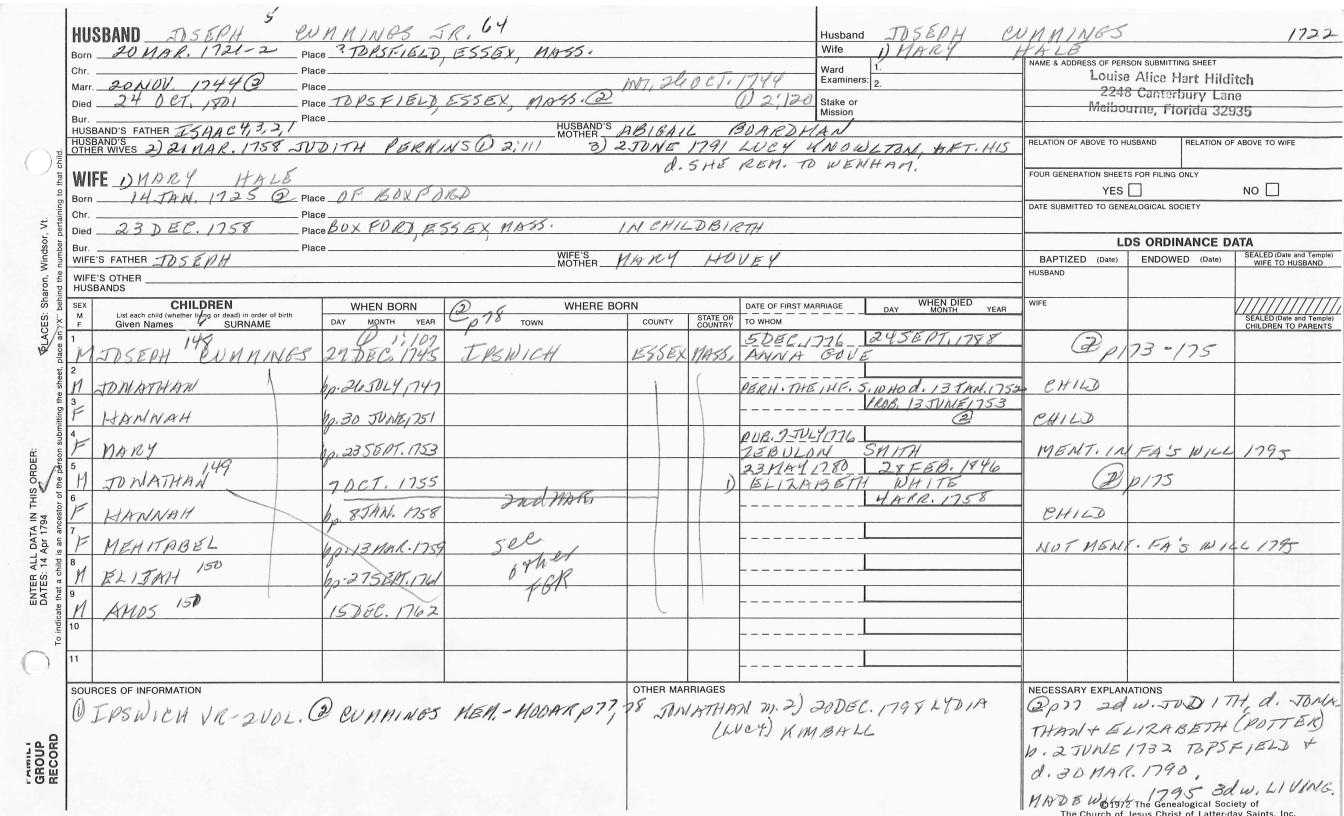 5
HUSBAND JOSEPH CUMMINGS JR. 64
Born 20 MAR. 1721-2 Place ? TOPSFIELD, ESSEX, MASS.
Chr. Place
Marr. 20 NOV. 1744 ② Place INT. 26 OCT. 1744
Died 24 OCT. 1801 Place TOPSFIELD, ESSEX, MASS. ② ① 2:120
Bur. Place
HUSBAND'S FATHER ISAAC 4,3,2,1 HUSBAND'S MOTHER ABIGAIL BOARDMAN
HUSBAND'S OTHER WIVES 2) 21 MAR. 1758 JUDITH PERKINS ① 2:111 3) 2 JUNE 1791 LUCY KNOWLTON, AFT. HIS
d. SHE REM. TO WENHAM.
WIFE 1) MARY HALE
Born 14 JAN. 1725 ② Place OF BOXFORD
Chr. Place
Died 23 DEC. 1758 Place BOXFORD, ESSEX, MASS. IN CHILDBIRTH
Bur. Place
WIFE'S FATHER JOSEPH WIFE'S MOTHER MARY HOVEY
WIFE'S OTHER HUSBANDS
Husband JOSEPH CUMMINGS 1722
Wife 1) MARY HALE
Ward Examiners: 1. 2.
Stake or Mission
NAME & ADDRESS OF PERSON SUBMITTING SHEET
Louise Alice Hart Hilditch
2248 Canterbury Lane
Melbourne, Florida 32935
RELATION OF ABOVE TO HUSBAND RELATION OF ABOVE TO WIFE
FOUR GENERATION SHEETS FOR FILING ONLY
YES NO
DATE SUBMITTED TO GENEALOGICAL SOCIETY
LDS ORDINANCE DATA
BAPTIZED (Date) ENDOWED (Date) SEALED (Date and Temple) WIFE TO HUSBAND
HUSBAND
WIFE
SEALED (Date and Temple) CHILDREN TO PARENTS
SEX M F CHILDREN WHEN BORN WHERE BORN DATE OF FIRST MARRIAGE WHEN DIED
List each child (whether living or dead) in order of birth
Given Names SURNAME DAY MONTH YEAR TOWN COUNTY STATE OR COUNTRY TO WHOM DAY MONTH YEAR
② p78
① 1:107
1 M JOSEPH 148 CUMMINGS 27 DEC. 1745 IPSWICH ESSEX MASS. 5 DEC. 1776 ANNA GOVE 24 SEPT. 1788 ② p173-175
2 M JONATHAN bp. 26 JULY, 1747 PERH. THE INF. S. WHO d. 13 JAN. 1752 CHILD
3 F HANNAH bp. 30 JUNE, 1751 PROB. 13 JUNE, 1753 ② CHILD
4 F MARY bp. 23 SEPT. 1753 PUB. 7 JULY 1776 ZEBULON SMITH MENT. IN FA'S WILL 1795
5 M JONATHAN 149 7 OCT. 1755 23 MAY, 1780 1) ELIZABETH WHITE 28 FEB. 1846 ② p175
6 F HANNAH bp. 8 JAN. 1758 2nd MAR. 4 APR. 1758 CHILD
7 F MEHITABEL bp. 13 MAR. 1759 see NOT MENT. FA'S WILL 1795
8 M ELIJAH 150 bp. 27 SEPT. 1761 other
FGR
9 M AMOS 150 15 DEC. 1762
10
11
SOURCES OF INFORMATION
① IPSWICH VR - 2 VOL. ② CUMMINGS MEM. - MODAR p77, 78
OTHER MARRIAGES
JONATHAN m. 2) 20 DEC. 1798 LYDIA
(LUCY) KIMBALL
NECESSARY EXPLANATIONS
② p77 2d w. JUDITH, d. JONA-
THAN & ELIZABETH (POTTER)
b. 2 JUNE 1732 TOPSFIELD &
d. 30 MAR. 1790.
MADE WILL 1795 3d w. LIVING.
©1972 The Genealogical Society of
The Church of Jesus Christ of Latter-day Saints, Inc.
ENTER ALL DATA IN THIS ORDER:
DATES: 14 Apr 1794
PLACES: Sharon, Windsor, Vt.
To indicate that a child is an ancestor of the person submitting the sheet, place an "X" behind the number pertaining to that child.
FAMILY GROUP RECORD